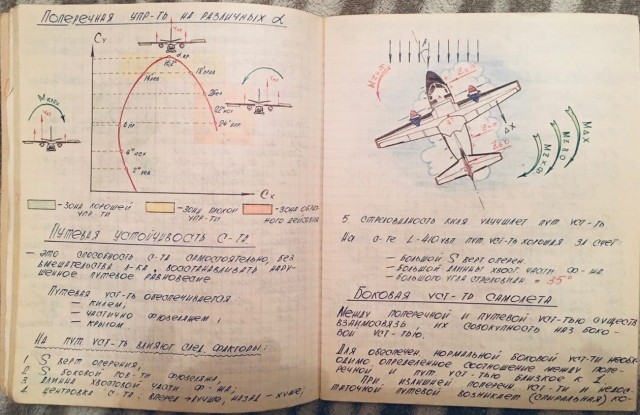 Поперечная упр-ть на различных α
Cy
α кр
16,2°
14°
18°
6°
22°
24°
4°
2°
Cx
М
- Зона хорошей упр-ти
- Зона плохой упр-ти
- Зона обратного действия
Путевая устойчивость с-та
- это способность с-та самостоятельно, без
вмешательства л-ка, восстанавливать нару-
шенное путевое равновесие
Путевая уст-ть обеспечивается
- килем,
- частично фюзеляжем,
- крылом
На пут уст-ть влияют след. факторы:
1 S верт оперения,
2 S боковой пов-ти фюзеляжа,
3 длинна хвостовой части ф-жа,
4 центровка с-та: вперед → лучше, назад - хуже,
ΔX
5 стреловидность киля улучшает пут уст-ть
На с-те L-410увп пут уст-ть хорошая за счет:
- большой S верт оперен.
- большой длинны хвост. части ф-жа
- большого угла стреловид. = 35°
Боковая уст-ть самолета
Между поперечной и путевой уст-тью существ
взаимосвязь, их совокупность наз боко-
вой уст-тью.
Для обеспечен. нормальной боковой уст-ти необхо-
димо определенное соотношение между попе-
речной и пут уст-тью близкое к 1.
При излишней поперечн. уст-ти и недос-
таточной путевой возникает (спиральная) ко-